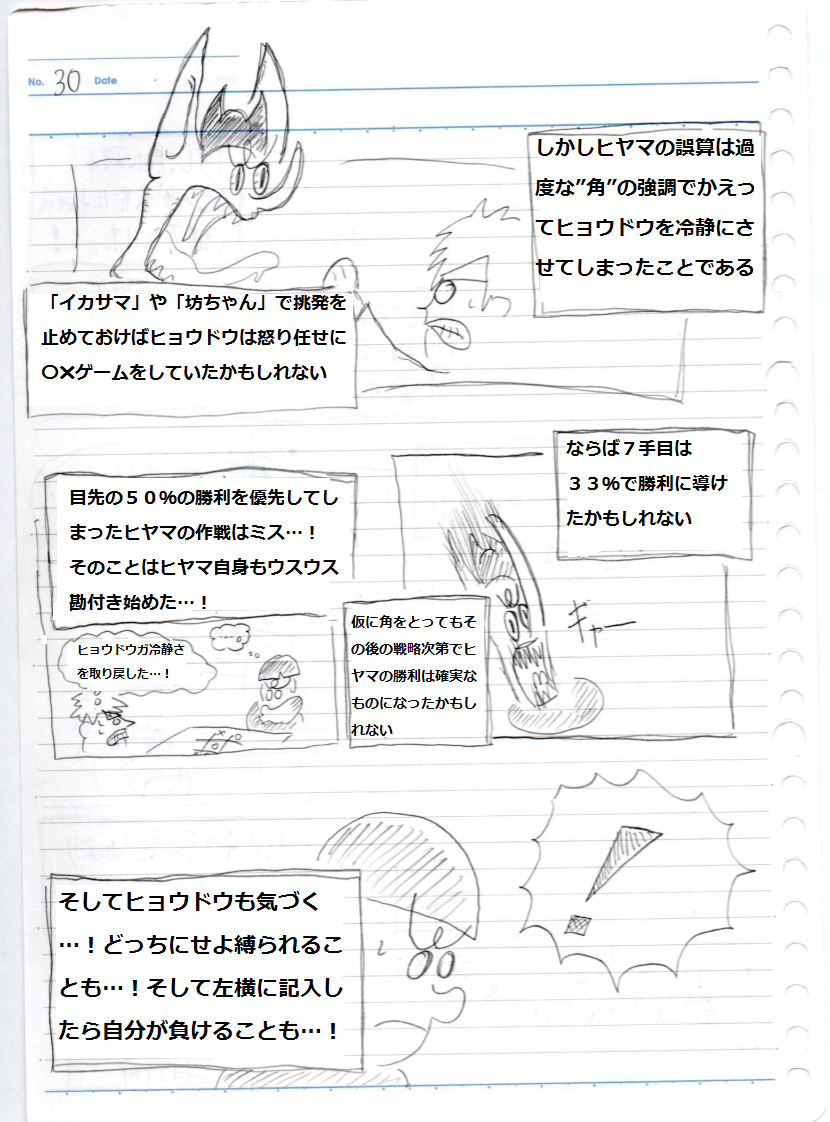 No. 30 Date
しかしヒヤマの誤算は過
度な”角”の強調でかえっ
てヒョウドウを冷静にさ
せてしまったことである
「イカサマ」や「坊ちゃん」で挑発を
止めておけばヒョウドウは怒り任せに
〇✕ゲームをしていたかもしれない
ならば７手目は
３３％で勝利に導け
たかもしれない
ギャー
仮に角をとってもそ
の後の戦略次第でヒ
ヤマの勝利は確実な
ものになったかもし
れない
目先の５０％の勝利を優先してし
まったヒヤマの作戦はミス…！
そのことはヒヤマ自身もウスウス
勘付き始めた…！
…。
ヒョウドウガ冷静さ
を取り戻した…！
！
そしてヒョウドウも気づく
…！どっちにせよ縛られるこ
とも…！そして左横に記入し
たら自分が負けることも…！